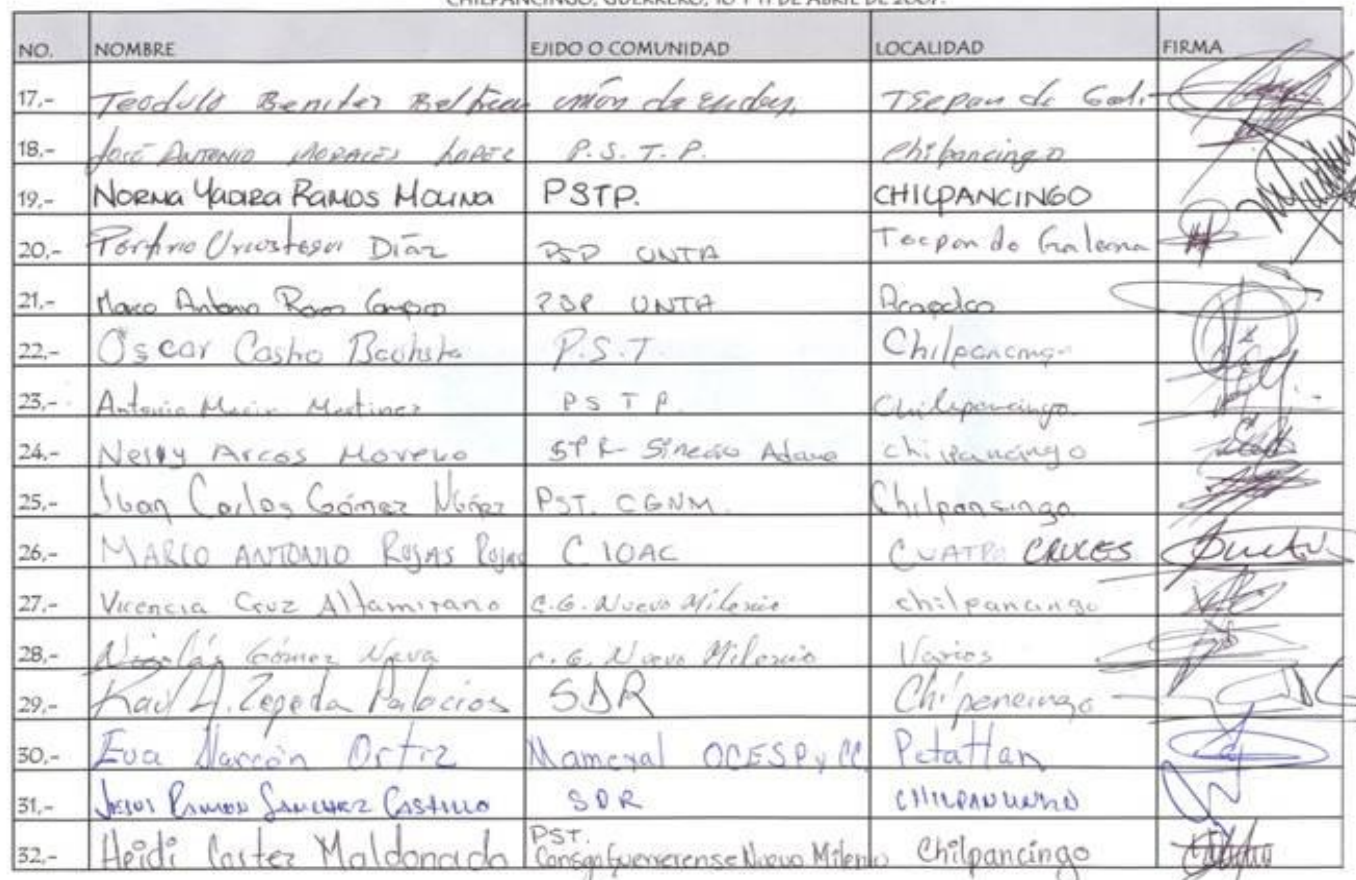 CHILPANCINGO, GUERRERO, 10 Y 11 DE ABRIL DE 2007.
NO. NOMBRE EJIDO O COMUNIDAD LOCALIDAD FIRMA
17.- Teodulo Benitez Beltran unión de Tecpan de
18.- José Antonio Morales Lopez P.S.T.P. Chilpancingo
19.- NORMA YADIRA RAMOS MOLINA PSTP. CHILPANCINGO
20.- Porfirio Uriostegui Diáz PSP UNTA Tecpan de Galeana
21.- Marco Antonio Ramos Campos PSP UNTA Acapulco
22.- Oscar Castro Bautista P.S.T Chilpancingo
23.- Antonio Martinez PSTP. Chilpancingo
24.- Nelly Arcos Moreno SPR Adame chilpancingo
25.- Juan Carlos Gómez Núñez PST. CGNM. Chilpansingo
26.- MARCO ANTONIO ROJAS Rojas CIOAC CUATRO CRUCES
27.- Vicencia Cruz Altamirano C.G. Nuevo Milenio chilpancingo
28.- Nicolás Gómez Nava C.G. Nuevo Milenio Varios
29.- Raul A. Zepeda Palacios SDR Chilpancingo
30.- Eva Alarcón Ortiz Mameyal OCESP y CC Petatlan
31.- JESUS RAMON SANCHEZ CASTILLO SDR CHILPANCINGO
32.- Heidi Cortez Maldonado PST.
Consejo Guerrerense Nuevo Milenio Chilpancingo